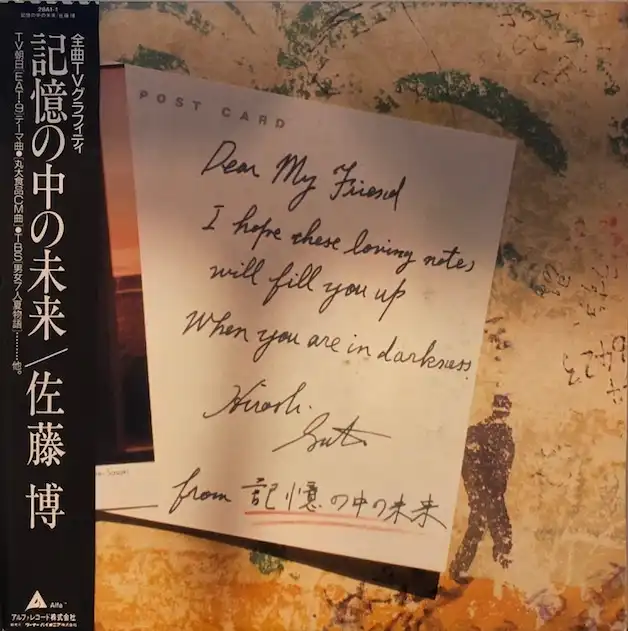 28Al-1
記憶の中の未来/佐藤 博
全曲TVグラフィティ
記憶の中の未来/佐藤 博
TV朝日[EAT-9]テーマ曲●[丸大食品CM曲]●TBS[男女7人夏物語]………他。
Alfa™
アルファレコード株式会社
ワーナー・パイオニア株式会社
POST CARD
Dear My Friend
I hope these loving notes,
will fill you up
When you are in darkness.
Hiroshi.
Sato
from 記憶の中の未来